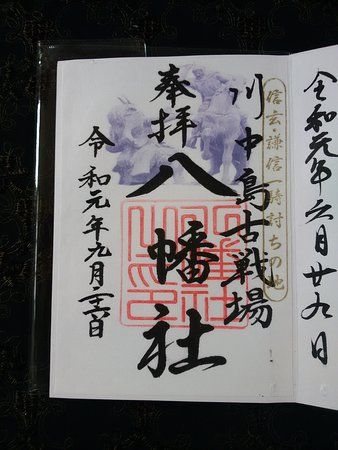 令和元年六月廿九日
信玄・謙信一騎討ちの地
川中島古戦場
奉拝
八幡社
令和元年九月